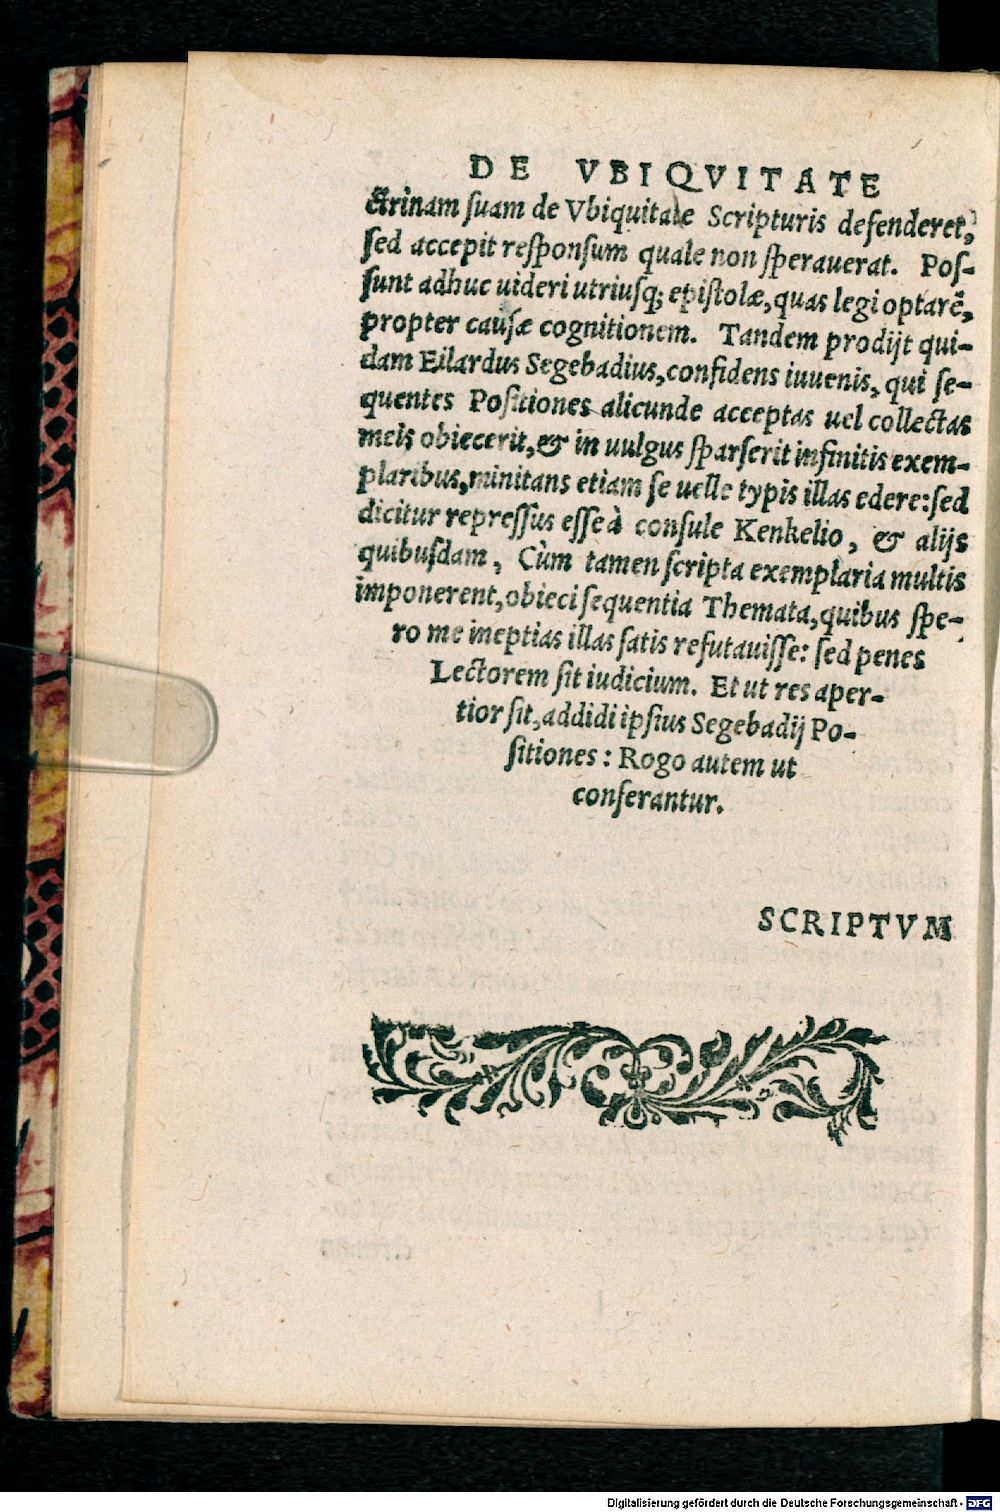 DE VBIQVITATE
ctrinam suam de Vbiquitate Scripturis defenderet,
sed accepit responsum quale non sperauerat. Pos-
sunt adhuc uideri utriusq; epistolæ, quas legi optarē,
propter causæ cognitionem. Tandem prodijt qui-
dam Eilardus Segebadius, confidens iuuenis, qui se-
quentes Positiones alicunde acceptas uel collectas
meis obiecerit, & in uulgus sparserit infinitis exem-
plaribus, minitans etiam se uelle typis illas edere: sed
dicitur repressus esse à consule Kenkelio, & alijs
quibusdam, Cùm tamen scripta exemplaria multis
imponerent, obieci sequentia Themata, quibus spe-
ro me ineptias illas satis refutauisse: sed penes
Lectorem sit iudicium. Et ut res aper-
tior sit, addidi ipsius Segebadij Po-
sitiones: Rogo autem ut
conferantur.
SCRIPTVM
Digitalisierung gefördert durch die Deutsche Forschungsgemeinschaft - DFG